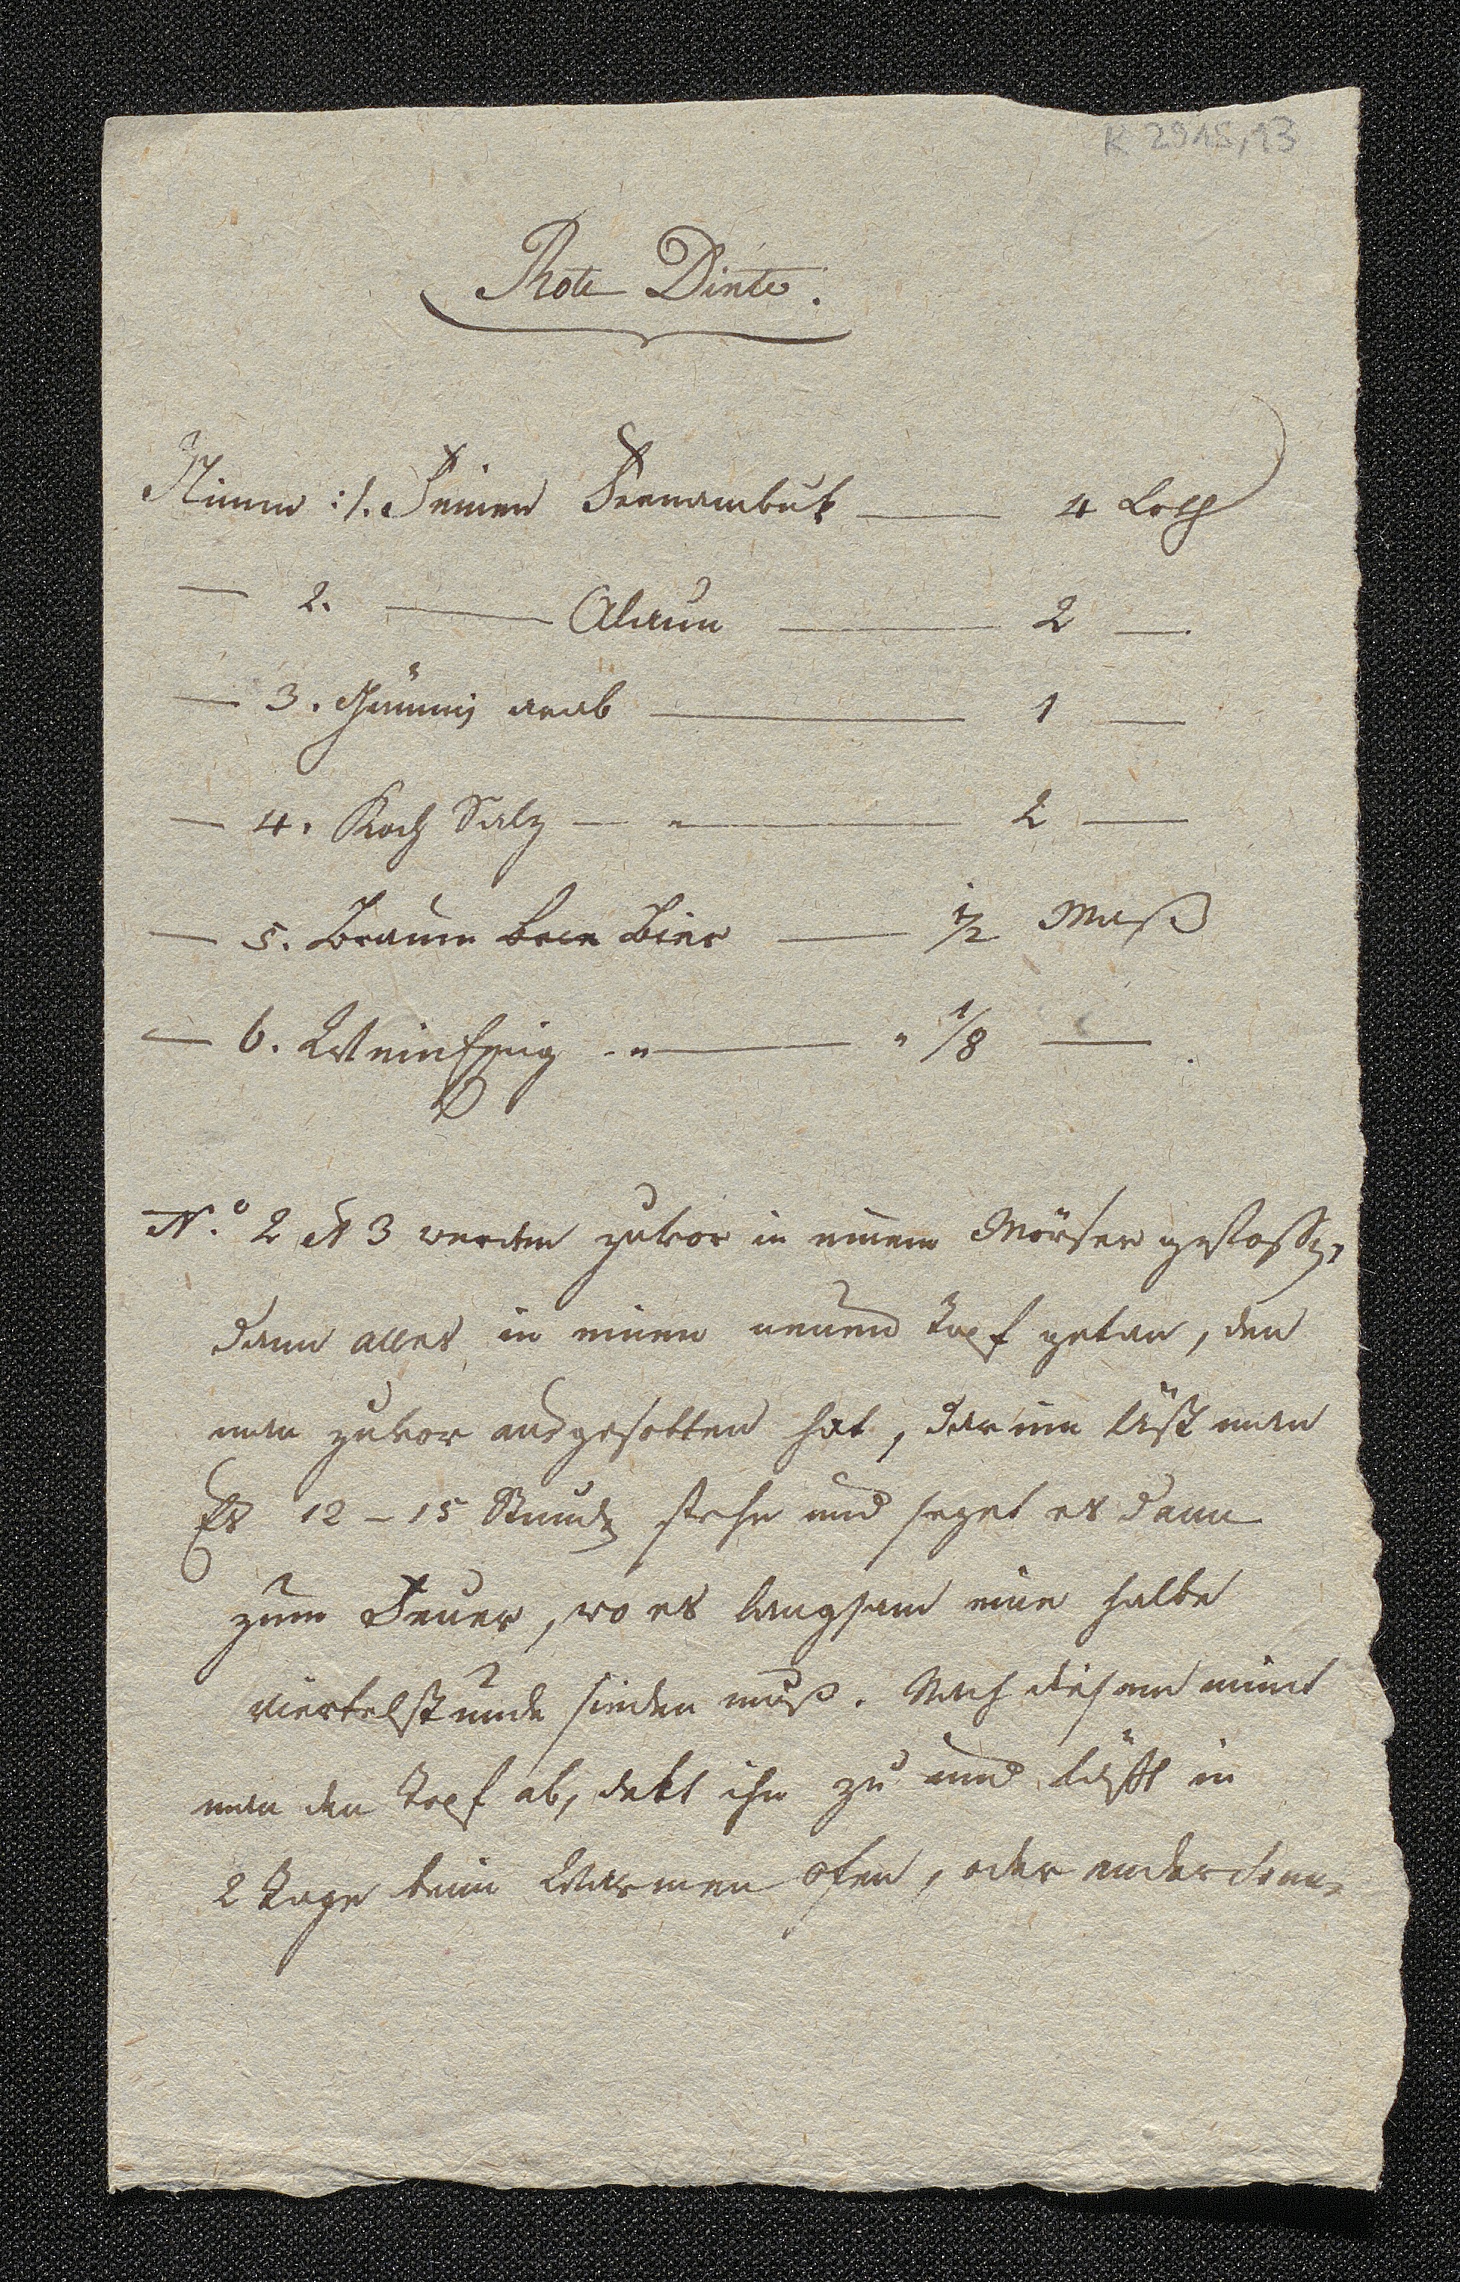 K 2918,13
Rote Dinte.
Nimm :1. Feinen Fernambuk — 4 Loth
— 2. — Alaun — 2 —
— 3. Gummi arab — 1 —
— 4. Koch Salz — " — 2 —
— 5. Braun Bier — 1/2 Maß
— 6. WeinEssig - " — " 1/8 — .
N.o 2 & 3 werden zuvor in einem Mörser gestoßen,
dann alles in einen neuen Topf getan, den
man zuvor ausgesotten hat, darinn läßt man
Es 12 – 15 Stunden stehn und sezet es dann
zum Feuer, wo es langsam eine halbe
viertelstunde sieden muß. Nach diesem nimt
man den Topf ab, dekt ihn zu und läßt in
2 Tage beim Warmen Ofen, oder